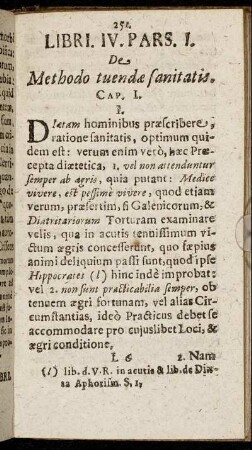 251.
LIBRI. IV. PARS. I.
De
Methodo tuendæ sanitatis.
CAP. I.
I.
Diætam hominibus præscribere,
ratione sanitatis, optimum qui-
dem est: verum enim verò, hæc Præ-
cepta diætetica, 1. vel non attenduntur
semper ab ægris, quia putant: Medicè
vivere, est pessimè vivere, quod etiam
verum, præsertim, si Galenicorum, &
Diatritariorum Torturam examinare
velis, qua in acutis tenuissimum vi-
ctum ægris concesserunt, quo sæpius
animi deliquium passi sunt, quod ipse
Hippocrates (l) hinc indè improbat:
vel 2. non sunt practicabilia semper, ob
tenuem ægri fortunam, vel alias Cir-
cumstantias, ideò Practicus debet se
accommodare pro cujuslibet Loci, &
ægri conditione,
L 6 2. Nam
(l) lib. d. V. R. in acutis & lib. de Diæ-
ta Aphorism. S. 1,